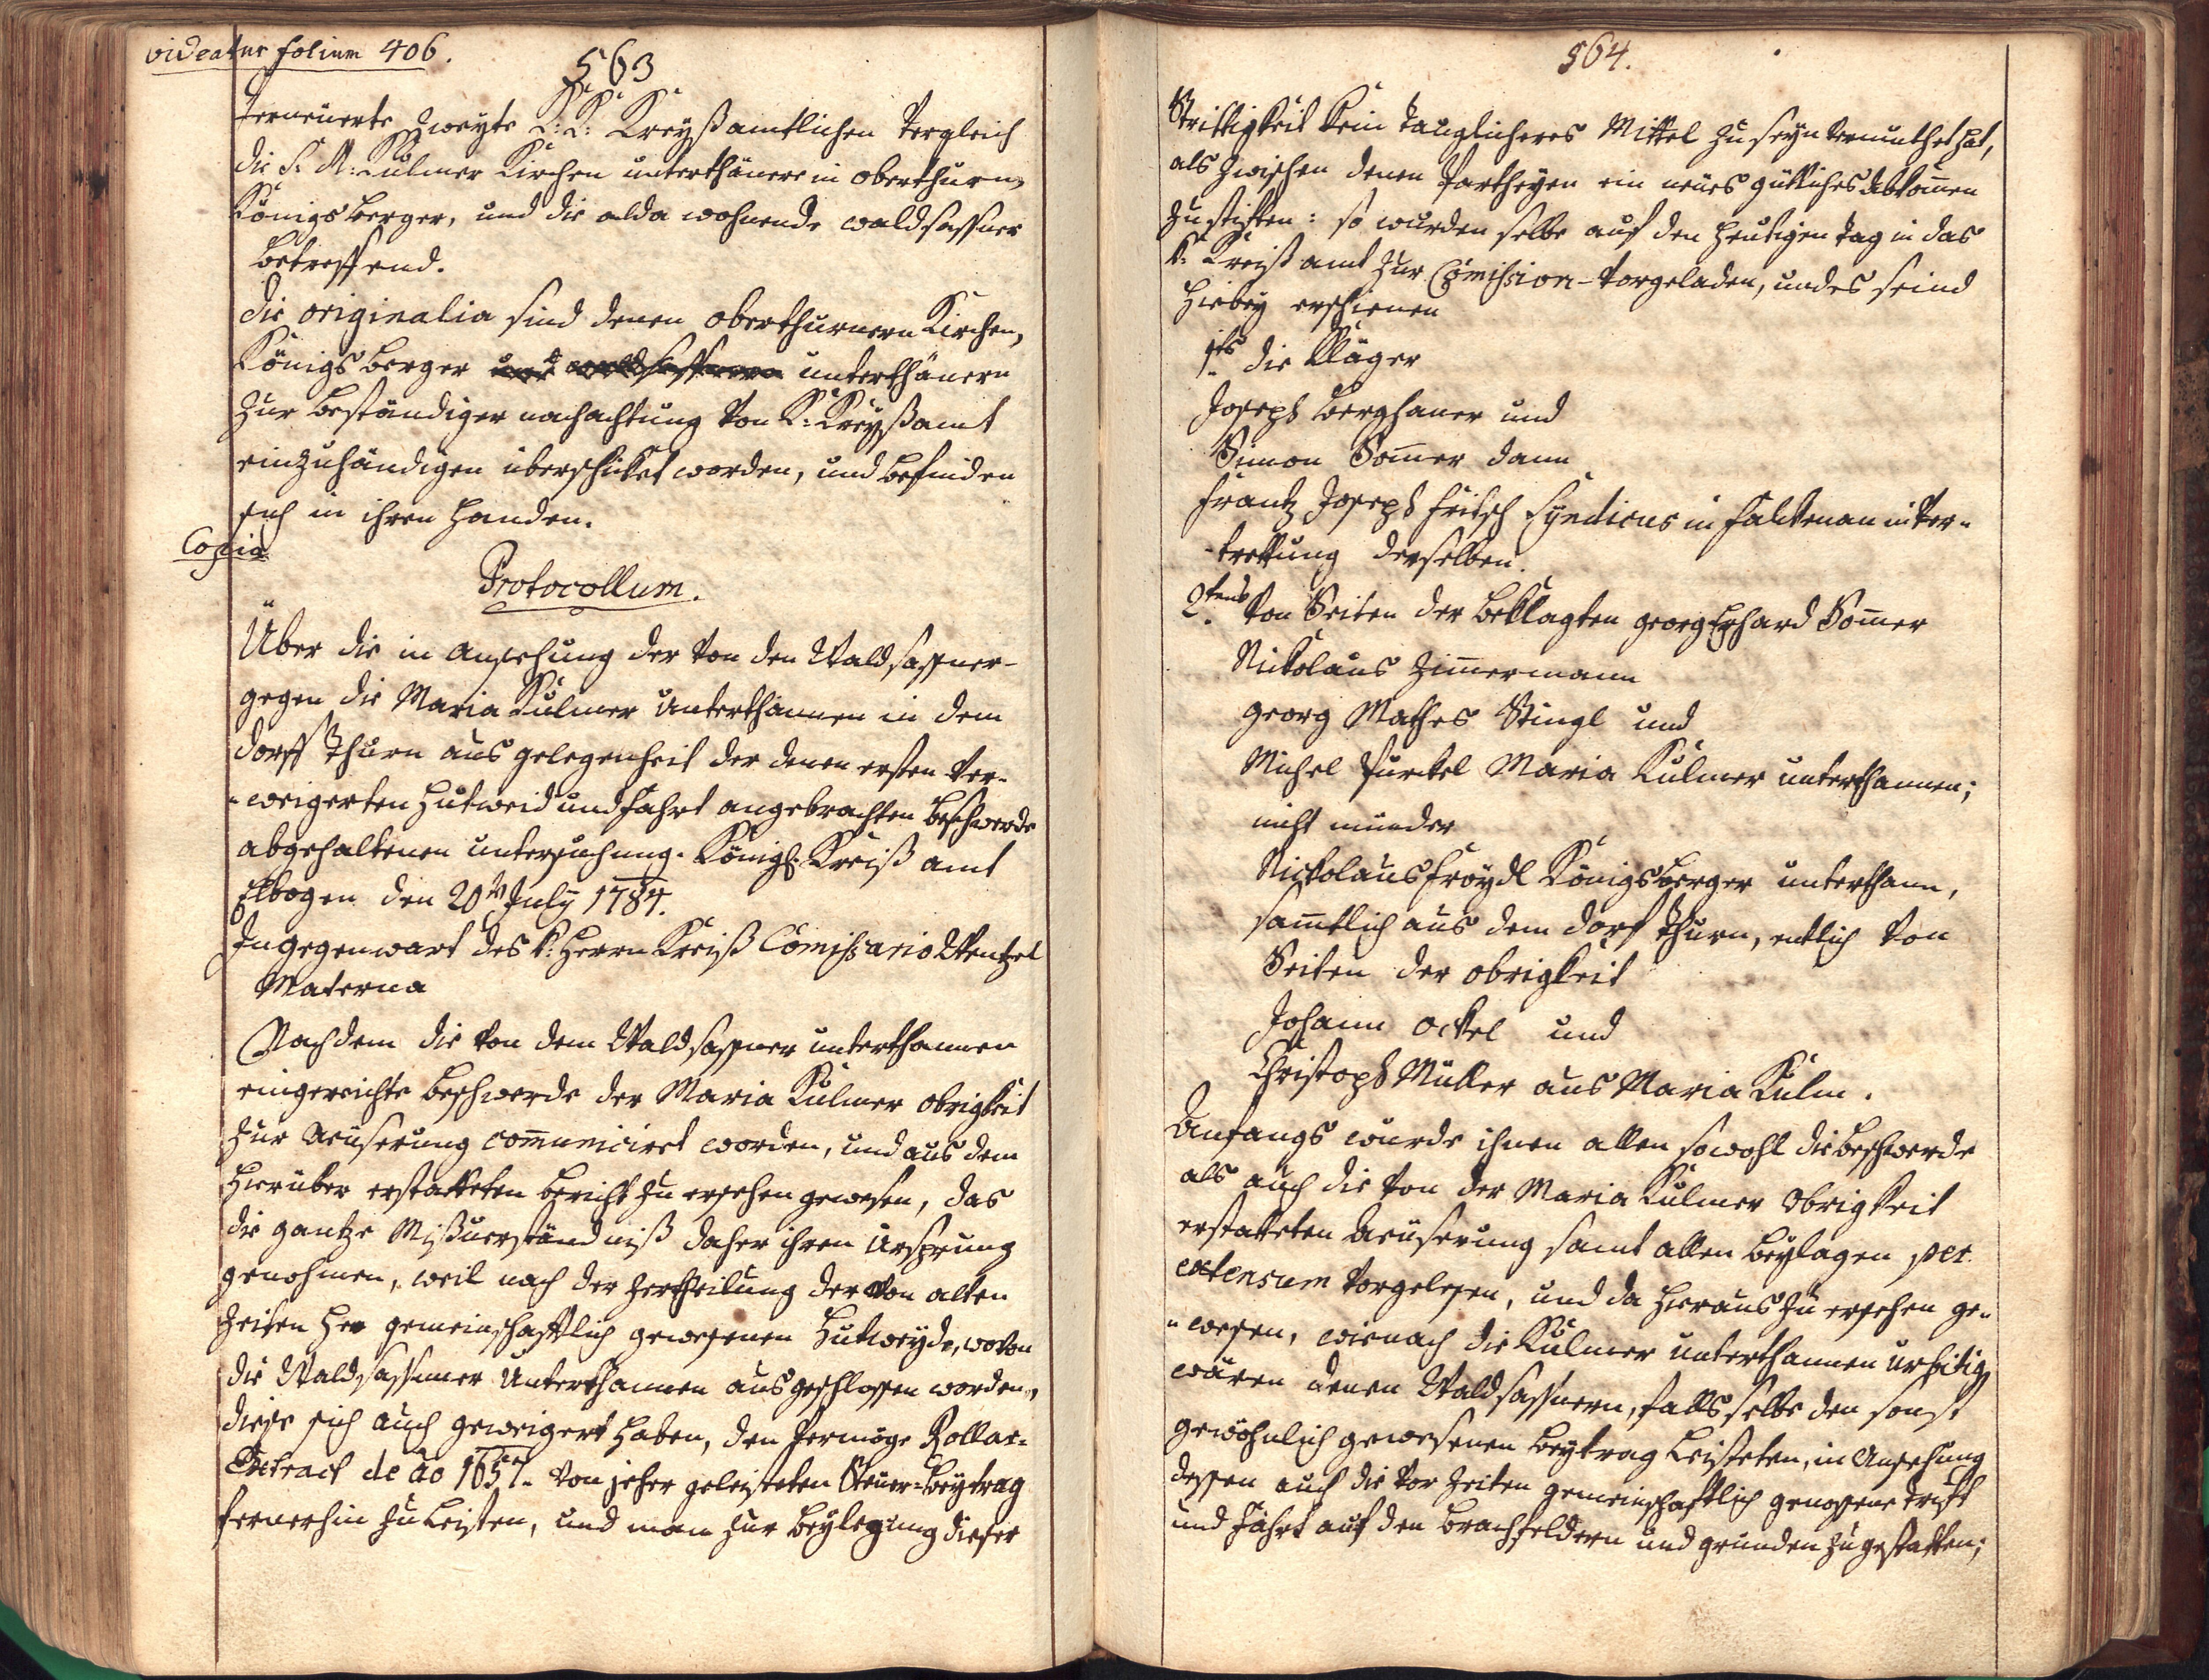 videatur folium 406.
563
Erneüerte zweyte K: K: Kreyßamtlichen Vergleich
die S: M: Kulmer Kirchen unterthänere in oberthurn,
Königsberger, und die alda wohnende waldsassner
betreffend.
die originalia sind denen oberthurnern Kirchen,
Königsberger und waldsassnern unterthänern
zur beständiger nachachtung von K: Kreyßamt
einzuhändigen überschicket worden, und befinden
sich in ihren Handen.
Copia
Protocollum.
Über die in ansehung der von den Waldsassner-
gegen die Maria Kulmer Unterthannen in dem
dorff Thurn aus gelegenheit der denen ersten ver-
-weigerten Hutweid und fahrt angebrachten beschwerde
abgehaltenen untersuchung. Königl: Kreiß amt
Elbogen den 20tn July 1784.
In gegenwart des k: Herrn Kreiß Comissario Wentzel
Materna
Nachdem die von dem Waldsassner unterthannen
eingereichte beschwerde der Maria Kulmer obrigkeit
zur äeüserung communiciret worden, und aus dem
hierüber erstatteten bericht zu ersehen gewesen, das
die gantze Mißverständniß daher ihren Ursprung
genohmen, weil nach der zertheilung der von alten
zeiten her gemeinschafftlich gewesenen Hutweyde, wovon
die Waldsassner Unterthannen ausgeschlossen worden,
diese sich auch geweigert haben, den vermöge Rollar-
Extract de ao 1657. von jeher geleisteten Steuer-beytrag
fernerhin zu leisten, und man zur beylegung dieser
564.
Strittigkeit kein tauglicheres Mittel zu seyn vermuthet hat,
als zwischen denen Partheyen ein neües gütliches abkomen
zu stiften: so wurden selbe auf den heütigen tag in das
k: Kreiß amt zur Comission vorgeladen, und es seind
hiebey erschienen
1tes die Kläger
Joseph berghaner und
Simon Somer dann
Frantz Joseph Fritsch Syndicus in Falkenau in ver-
-trettung derselben.
2.tens von Seiten der beklagten georg Erhard Somer
Nickolaus Zimermann
georg Mathes Stingl und
Michel Purckel Maria Kulmer unterthannen;
nicht minder
Nickolaus Fröydl Königsberger unterthann,
samtlich aus dem dorf Thurn, entlich von
Seiten der obrigkeit
Johann Ockel und
Christoph Müller aus Maria Kulm.
Anfangs wurde ihnen allen sowohl die beschwerde
als auch die von der Maria Kulmer Obrigkeit
erstatteten äeüserung samt allen beylagen per
extensum vorgelesen, und da hieraus zu ersehen ge-
-wesen, wienach die Kulmer unterthannen urbittig
wären denen Waldsassnern, falls selbe den sonst
gewöhnlich gewesenen beytrag leisteten, in Ansehung
dessen auch die vor zeiten gemeinschaftlich genossene trift
und fahrt auf den brachfeldern und gründen zu gestatten;